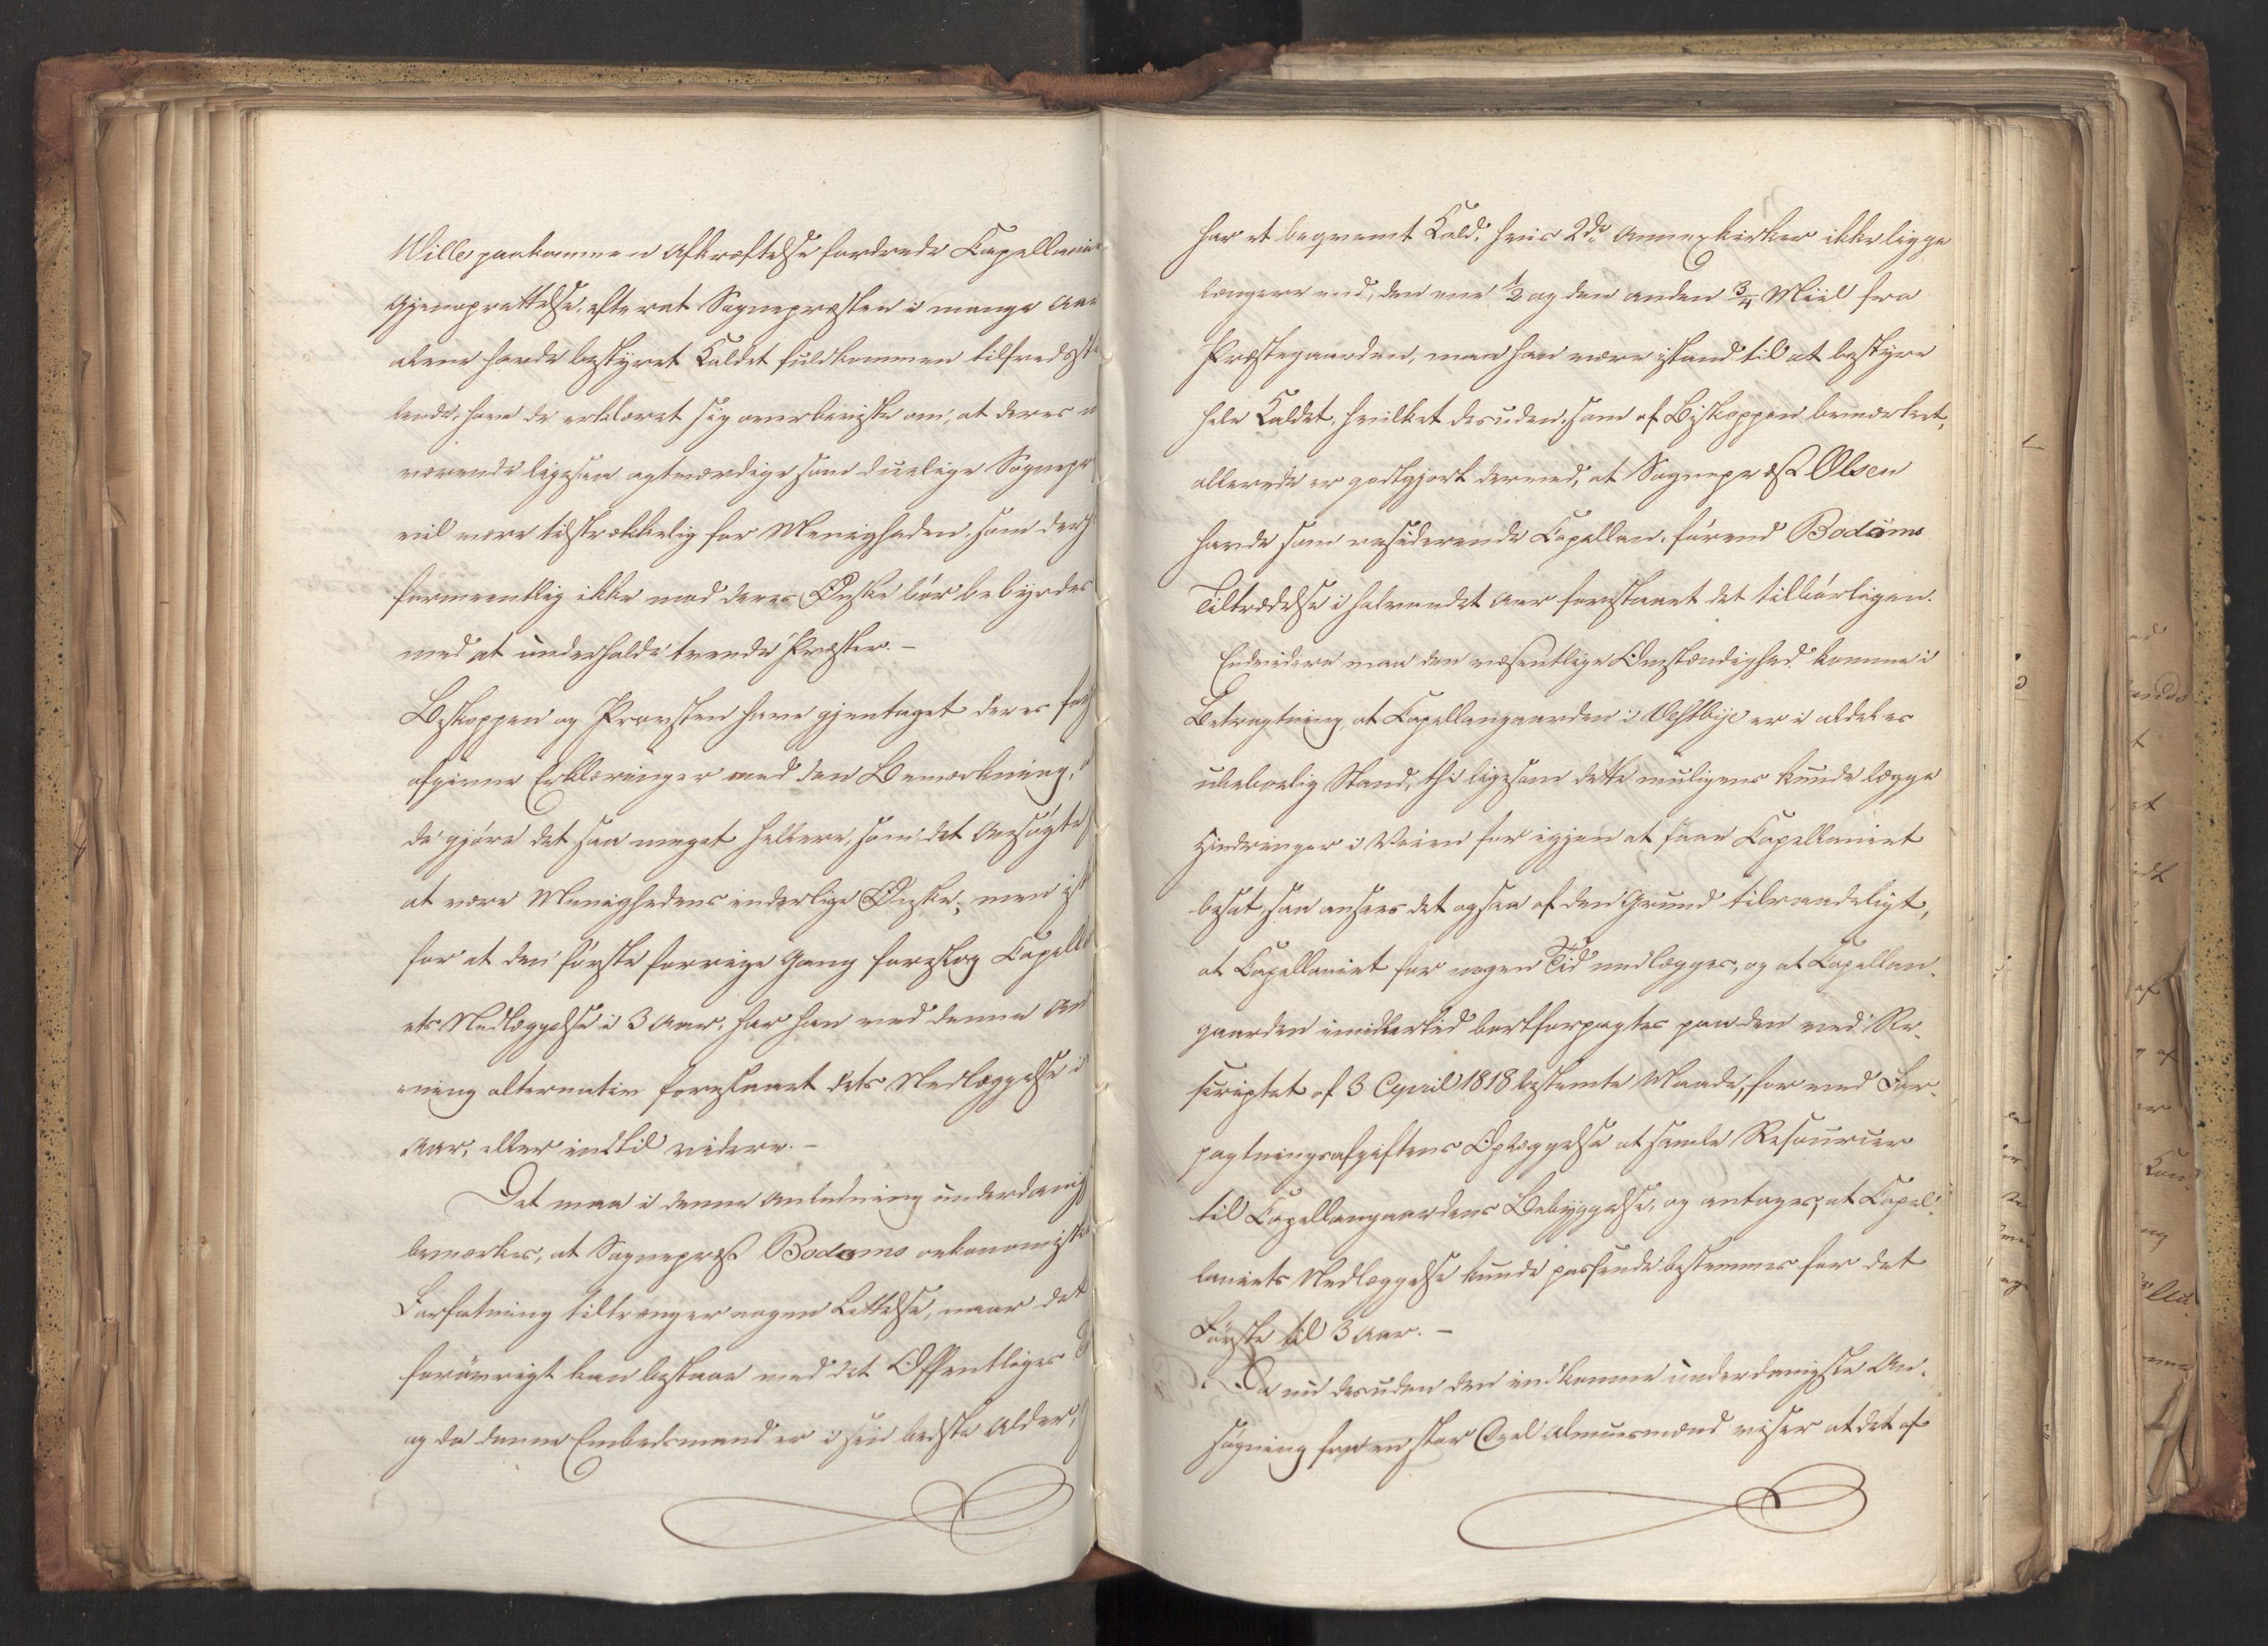 Wille paakommen Afkræftelse fordrede Capellaniets
Gjenoprettelse, efterat Sognepræsten i mange Aar
alene havde bestyret Kaldet fuldkommen tilfredsstil
lende, have de erklæret sig overbeviiste om, at deres n
værende ligesaa agtværdige som duelige Sognepr
vil være tilstrækkelig for Menigheden, som derf
formeentlig ikke mod deres Ønske bør bebyrdes
med at underholde tvende Præster. –
Biskoppen og Provsten have gjentaget deres forh
afgivne Erklæringer med den Bemærkning, a
de gjøre det saa meget hellere, som det Ansøgte
at være Menighedens inderlige Ønske; men ist
for at den første forrige Gang foreslog Capella
ets Nedlæggelse i 3 Aar, har han ved denne An
ning alternativ foreslaaet dets Nedlæggelse i
Aar, eller indtil videre. –
Det maa i denne Anledning underdanigst
bemærkes, at Sognepræst Bodoms oekonomiske
Forfatning tiltrænger nogen Lettelse, naar det
forøvrigt kan bestaae med det Offentliges
og da denne Embedsmand er i sin bedste Alder,
har et beqvemt Kald, hvis 2de Annexkirker ikke ligge
længere end, den ene 1/2 og den anden 3/4 Miil fra
Præstegaarden, maa han være istand til at bestyre
hele Kaldet, hvilket desuden, som af Biskoppen bemærket,
allerede er godtgjort dermed, at Sognepræst Olsen
havde som residerende Capellan, førend Bodoms
Tiltrædelse i halvandet Aar forestaaet det tilbørligen.
Endvidere maa den væsentlige Omstændighed komme i
Betragtning, at Capellangaarden i Vestbye er i aldeles
ubeboelig Stand, thi ligesom dette muligens kunde lægge
Hindringer i Veien for igjen at faae Capellaniet
besat, saa ansees det ogsaa af den Grund tilraadeligt,
at Capellaniet for nogen Tid nedlægges, og at Capellan-
gaarden imidlertid bortforpagtes paa den ved Re-
scriptet af 3 April 1818 bestemte Maade, for ved For-
pagtningsafgiftens Oplæggelse at samle Resourcer
til Capellangaardens Bebyggelse, og antages, at Capel-
laniets Nedlæggelse kunde passende bestemmes for det
Første til 3 Aar. –
Da nu desuden den indkomne underdanigste An-
søgning fra en stor Deel Almuesmænd viser at det af